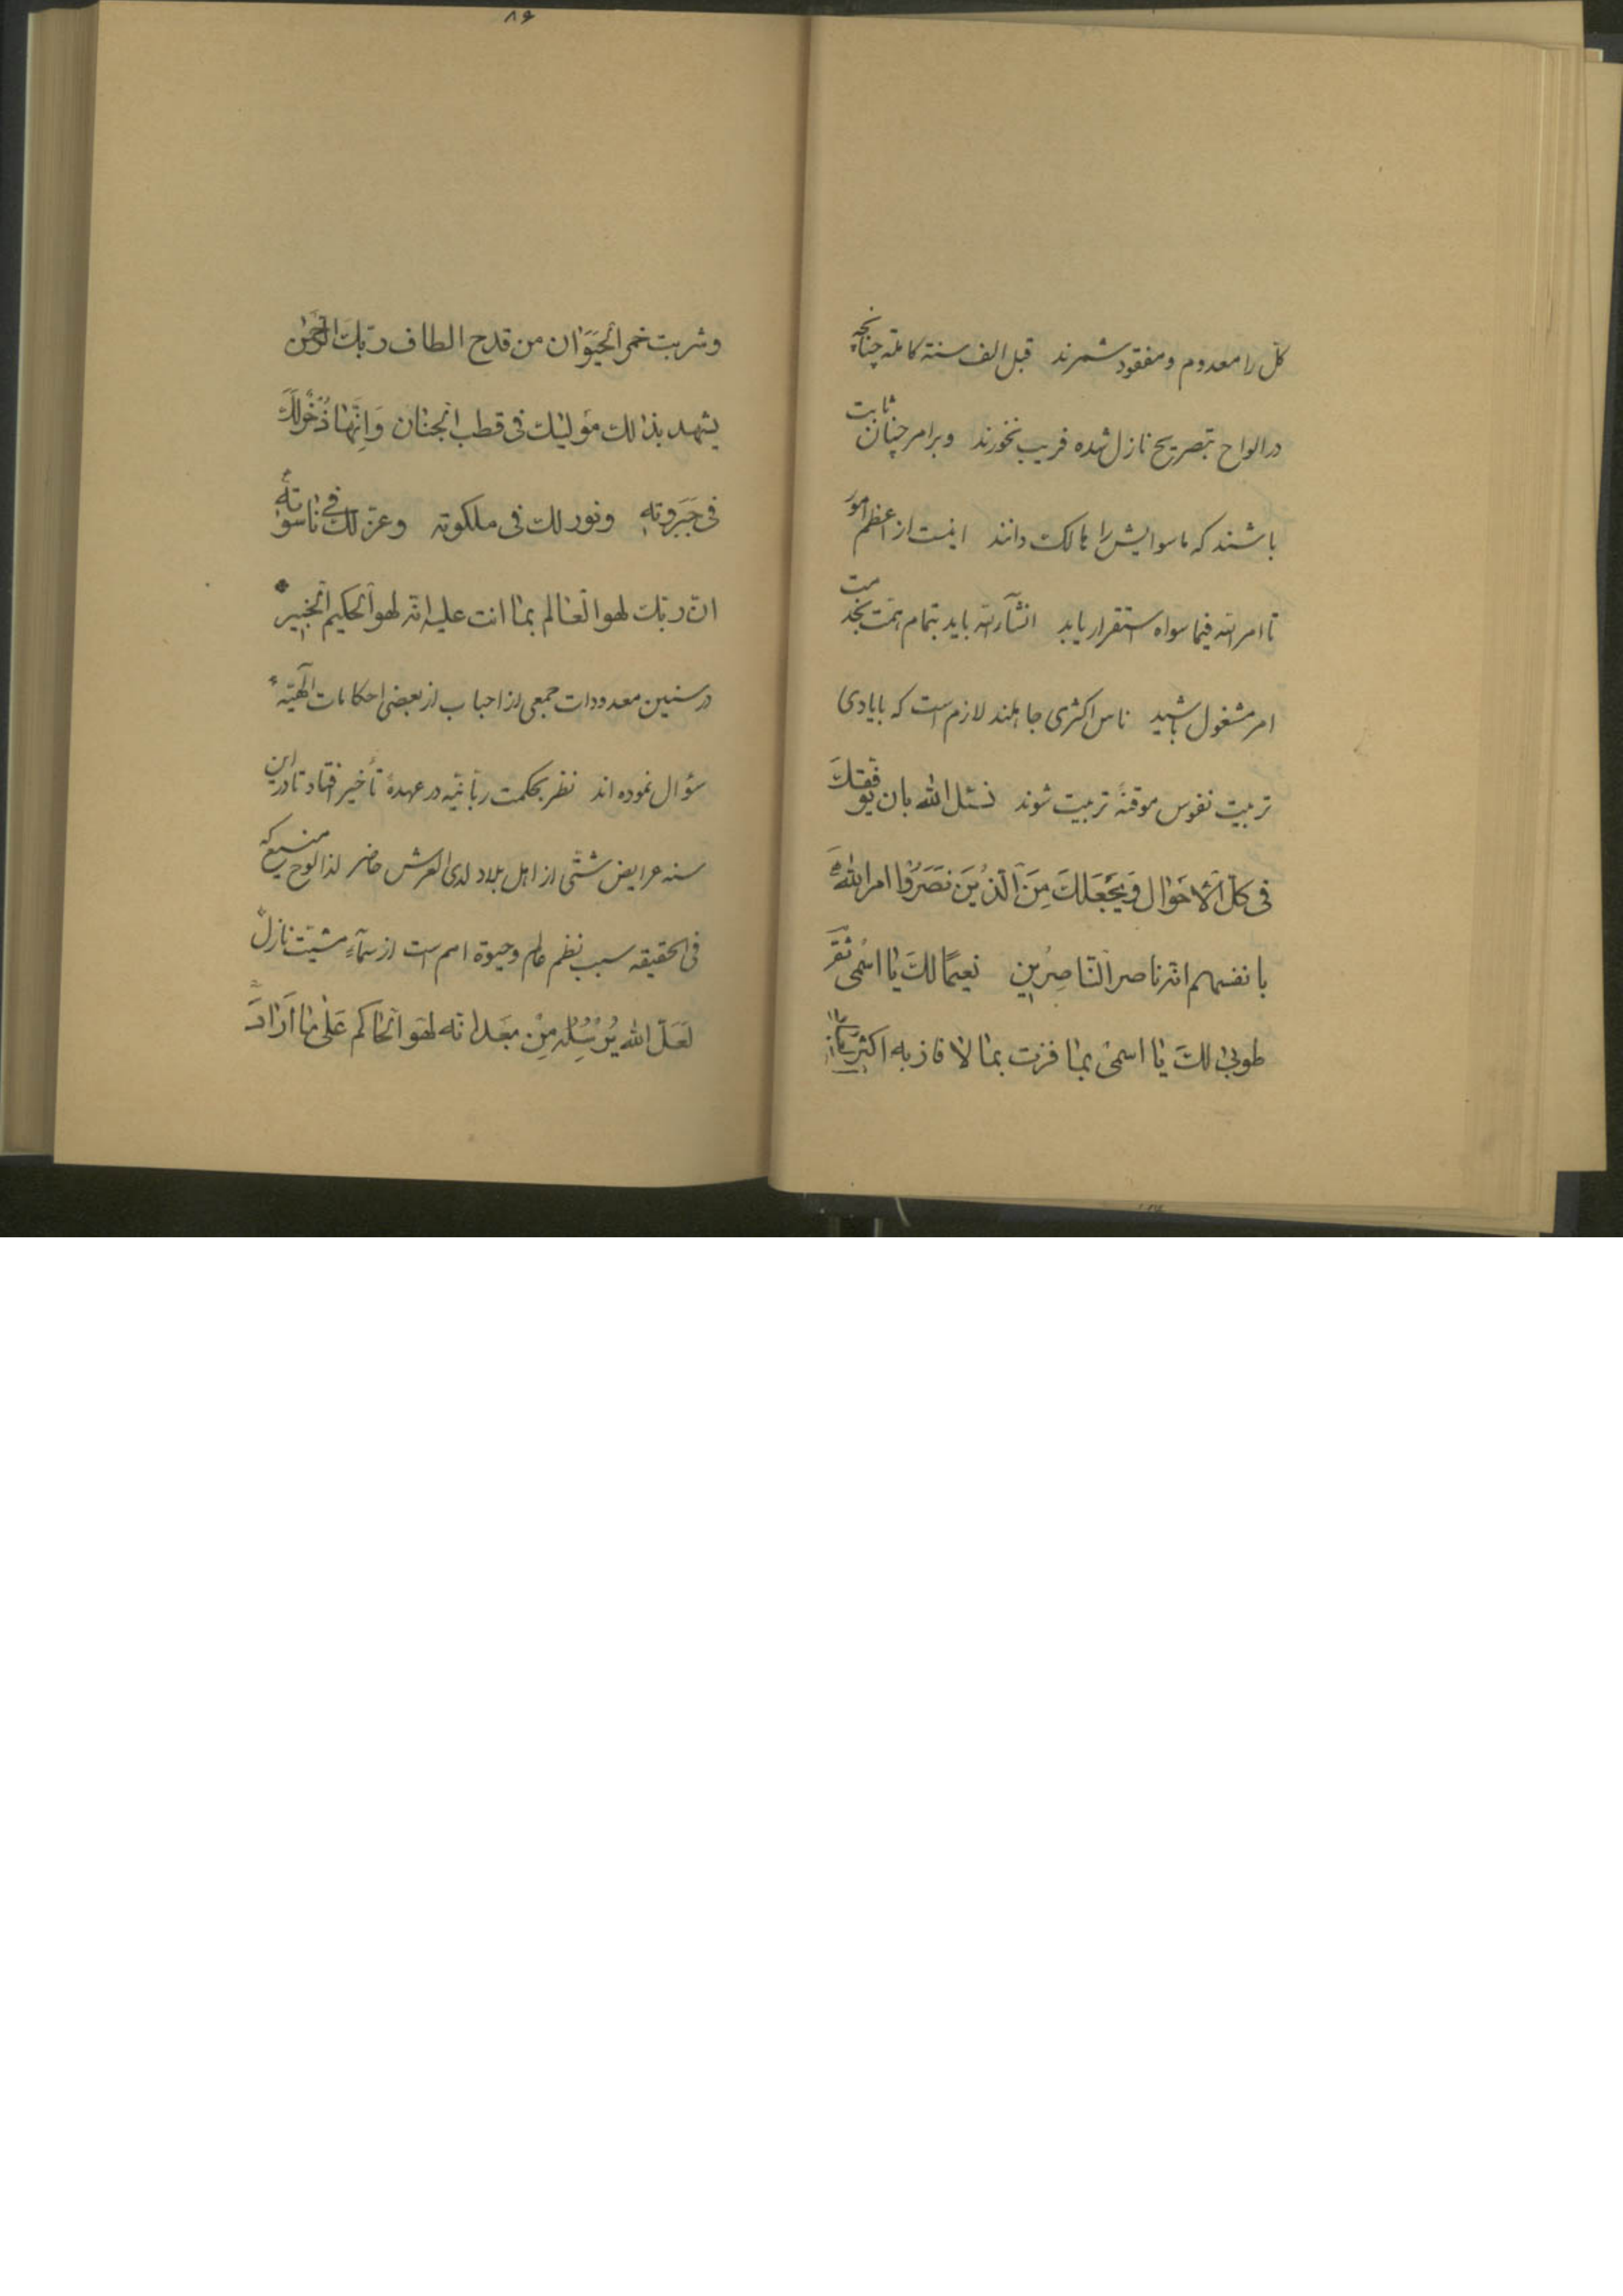 کلّ را معدوم و مفقود شمرند قبل الف سنة کاملة چنانچه
در الواح بتصریح نازل شده فریب نخورند و بر امر چنان ثابت
باشند که ماسوایش را هالک دانند اینست از اعظم امور
تا امر الله فیما سواه استقرار یابد انشآءالله باید بتمام همّت بخدمت
امر مشغول باشید ناس اکثری جاهلند لازم است که بایادی
تربیت نفوس موقنهٔ تربیت شوند نسئل الله بان یوفّقکَ
فی کلّ الاَحَوال وَ یَجعَلکَ مِنَ الّذینَ نَصَرُوا امر اللهِ
بانفسهم انّه ناصر النّاصِرین نعیماً لکَ یا اسمی ثمّ
طوبی لکَ یا اسمی بما فزت بما لا فاز به اکثر
۸۶
و شربت خمر الحَیَوان من قدح الطاف ربّکَ الرّحمن
یشهد بذلک مولیک فی قطب الجنان وَ اِنّها ذُخرٌ لَکَ
فی جَبَروتِهِ و نور لک فی ملکوته و عزّ لک فی ناسوتِهِ
انّ ربّک لهو العالم بما انت علیه انّه لهو الحکیم الخبیر
در سنین معدودات جمعی از احباب از بعضی احکامات الهیّه
سؤال نموده‌اند نظر بحکمت ربّانیّه در عهدهٔ تأخیر افتاد تا در این
سنه عرایض شتّی از اهل بلاد لدی العرش حاضر لذا لوح منیع که
فی الحقیقه سبب نظم عالم و حیوة امم است از سمآء مشیّت نازل
لَعَلّ الله یُرْسِلُه مِنْ بَعَد انّه لَهَو الحاکم عَلی ما اَرَادَ